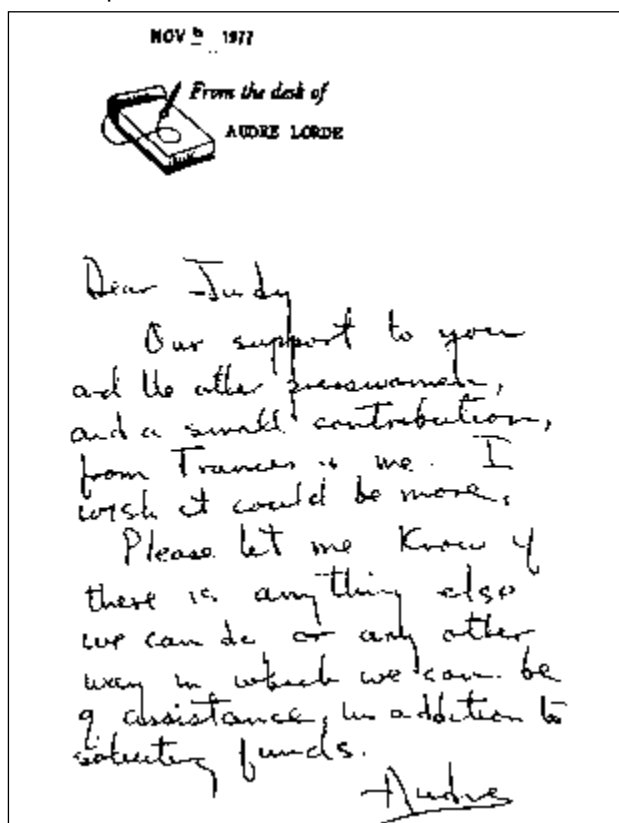 NOV 6 1977
From the desk of
AUDRE LORDE
Dear Judy
Our support to you
and the other presswomen,
and a small contribution,
from Frances & me. I
wish it could be more.
Please let me know if
there is anything else
we can do or any other
way in which we can be
of assistance, in addition to
soliciting funds.
Audre